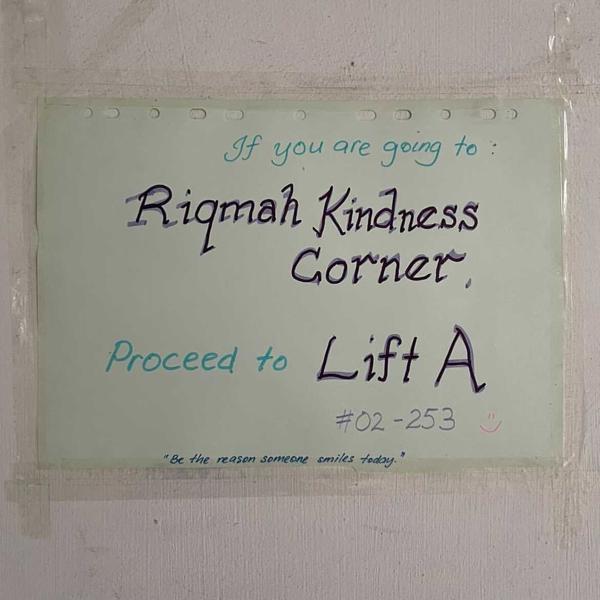 If you are going to :
Riqmah Kindness
Corner,
Proceed to Lift A
#02-253
"Be the reason someone smiles today."